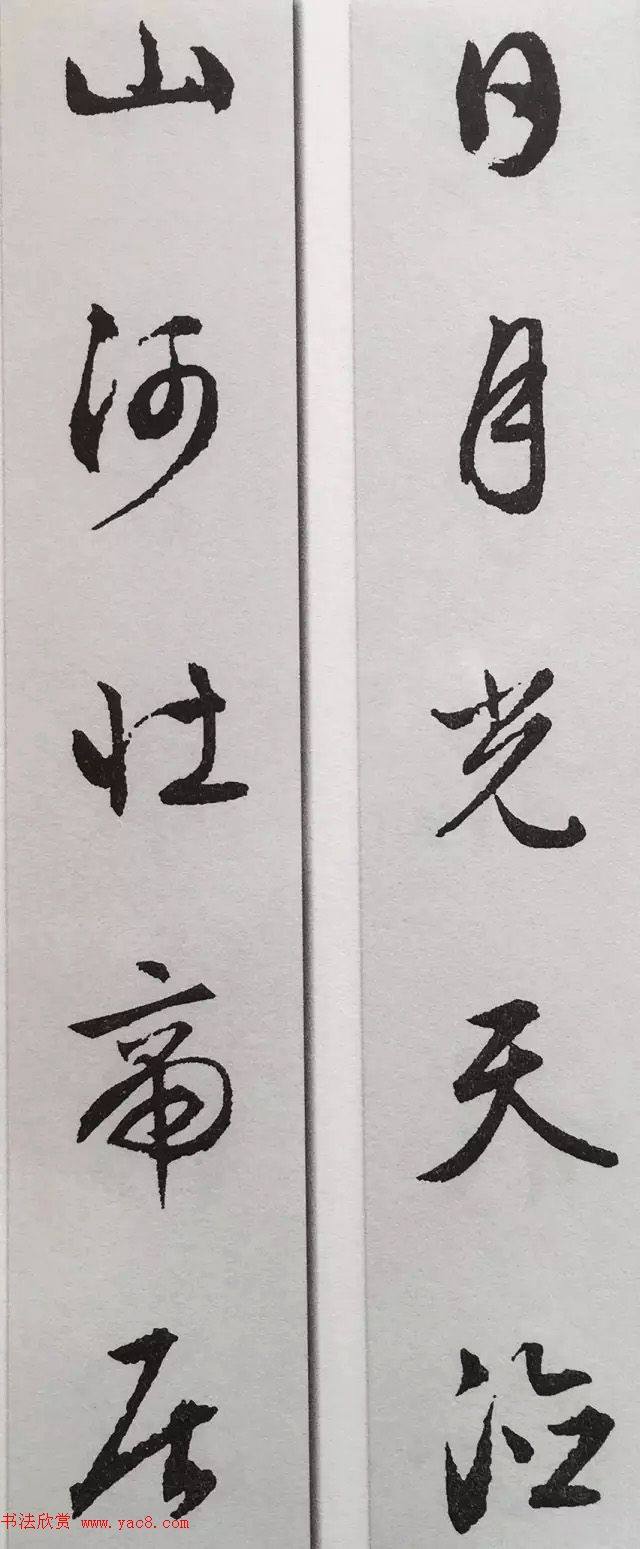 日月光天德
山河壮帝居
书法欣赏 www.yac8.com